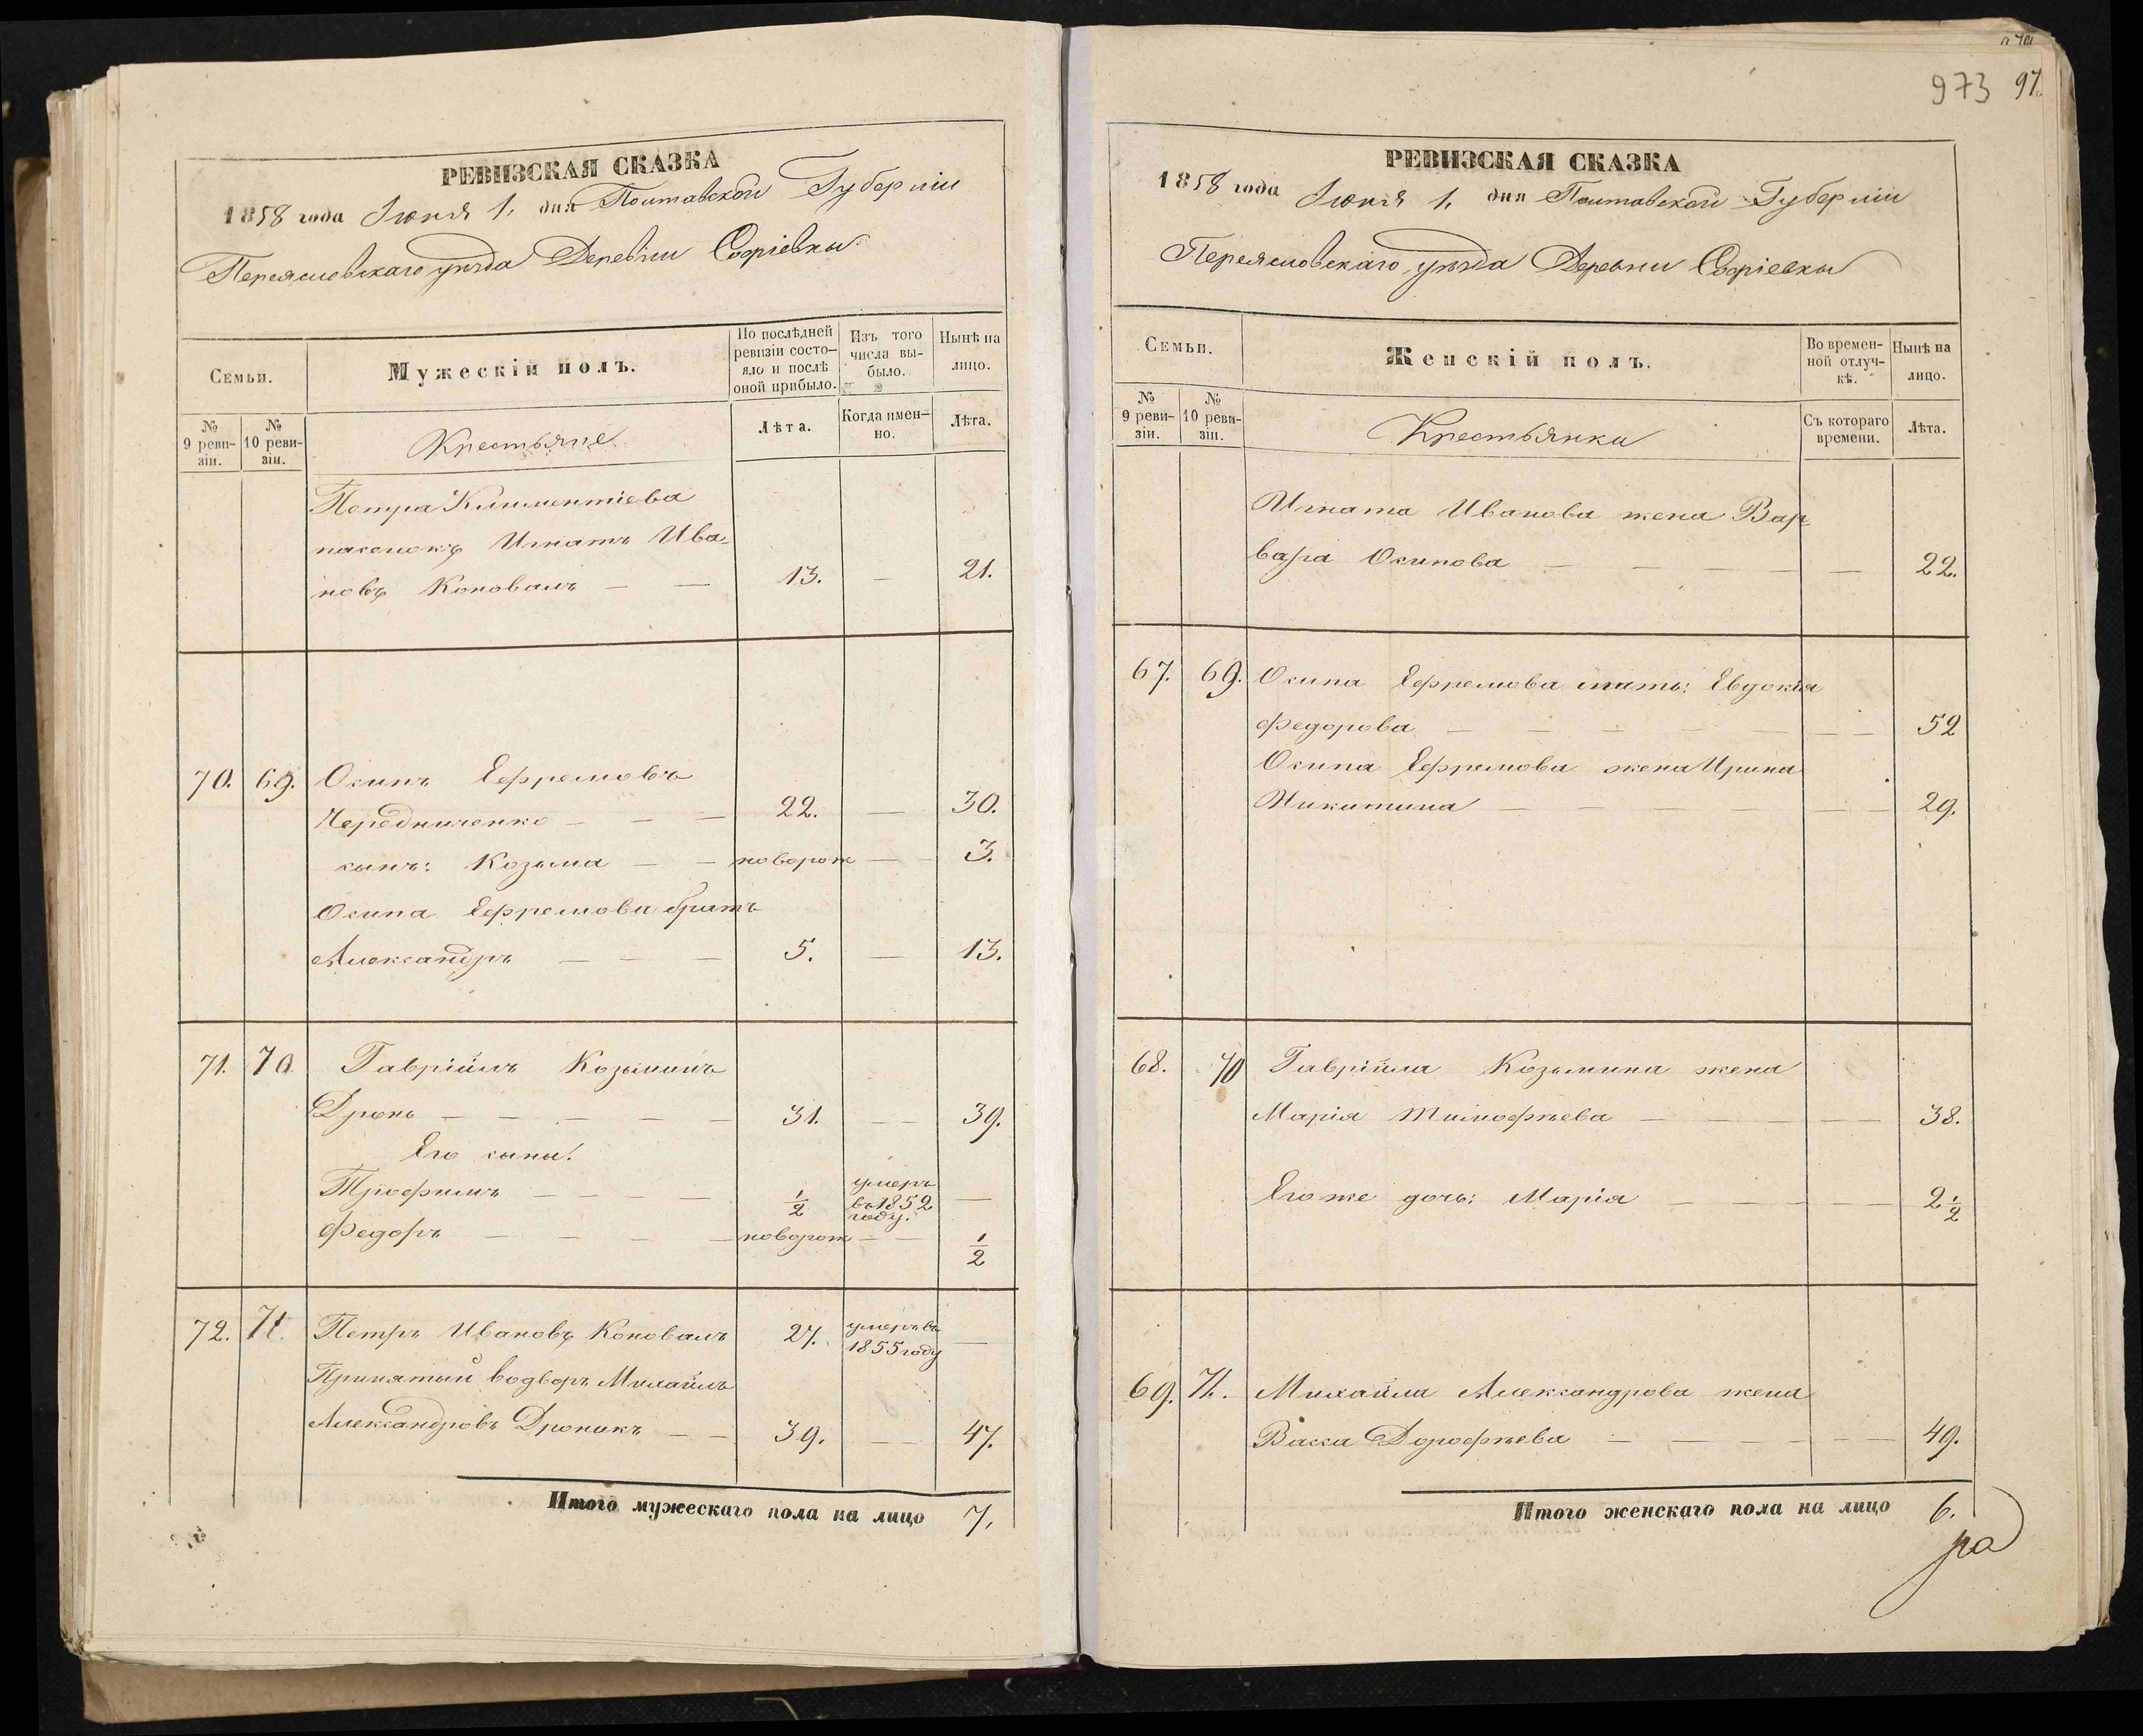 РЕВИЗСКАЯ СКАЗКА
1858 года Июня 1. дня Полтавской Губерніи
Переясловскаго уѣзда Деревни Софіевки
Семьи.
Мужескій полъ.
По послѣдней ревизіи состо-
яло и послѣ оной прибыло.
Изъ того числа вы-
было.
Нынѣ на лицо.
№ 9 реви-
зіи.
№ 10 реви-
зіи.
Крестьяне
Лѣта.
Когда имен-
но.
Лѣта.
Петра Климентіева
пасынокъ Игнатъ Ива-
новъ Коновалъ — — 13. — 21.
70. 69. Осипъ Ефремовъ
Чередниченко — — — 22. — 30.
сынъ: Козьма — — новорож — 3.
Осипа Ефремова братъ
Александръ — — — 5. — 13.
71. 70 Гавріилъ Козьминъ
Дронь — — — — — 31. — — 39.
Его сыны:
Трофимъ — — — — 1/2 умеръ въ 1852 году. —
Федоръ — — — — — новорож — — 1/2
72. 71. Петръ Ивановъ Коновалъ 27. умеръ въ 1855 году —
Принятый во дворъ Михайлъ
Александровъ Дроникъ — — 39. — — 47.
Итого мужескаго пола на лицо 7.
973
РЕВИЗСКАЯ СКАЗКА
1858 года Июня 1. дня Полтавской Губерніи
Переясловскаго уѣзда Деревни Софіевки
Семьи.
Женскій полъ.
Во времен-
ной отлуч-
кѣ.
Нынѣ на лицо.
№ 9 реви-
зіи.
№ 10 реви-
зіи.
Крестьянки
Съ котораго времени.
Лѣта.
Игната Иванова жена Вар-
вара Осипова — — — — — 22.
67. 69. Осипа Ефремова мать: Евдокія
Федорова — — — — — — — 52
Осипа Ефремова жена Ирина
Никитина — — — — — 29.
68. 70 Гавріила Козьмина жена
Марія Тимофѣева — — — — — 38.
Его же дочь: Марія — — — — — 2 1/2
69. 71. Михайла Александрова жена
Васса Дорофѣева — — — — — — 49.
Итого женскаго пола на лицо 6.